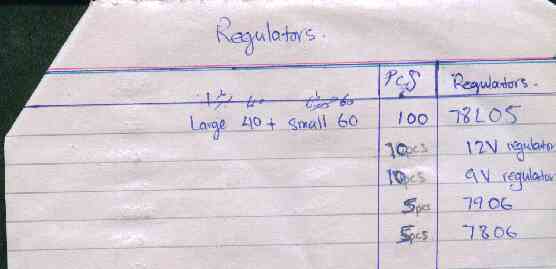 Regulators.
Pcs Regulators.
Large 40 + small 60 100 78L05
10pcs 12V regulator
10pcs 9V regulator
5pcs 7906
5pcs 7806